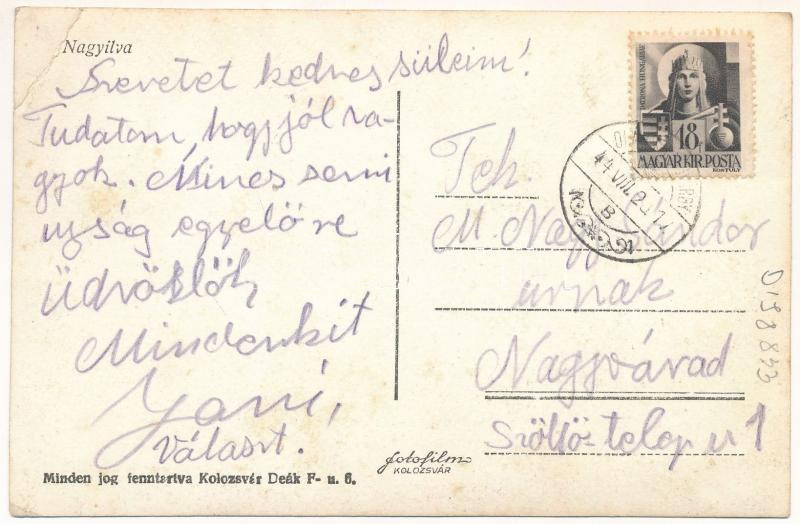 Nagyilva
Szeretet kedves szüleim!
Tudatom, hogy jól va-
gyok. Nincs semi
ujság egyelőre
Üdvözlök
Mindenkit
Jani,
Választ.
Minden jog fenntartva Kolozsvár Deák F- u. 6.
fotofilm
KOLOZSVÁR
PATRONA HUNGARIAE
18f
MAGYAR KIR. POSTA
44 VIII.
B
Tek.
M. Nagy Sándor
urnak
Nagyvárad
Szöllö-telep u 1